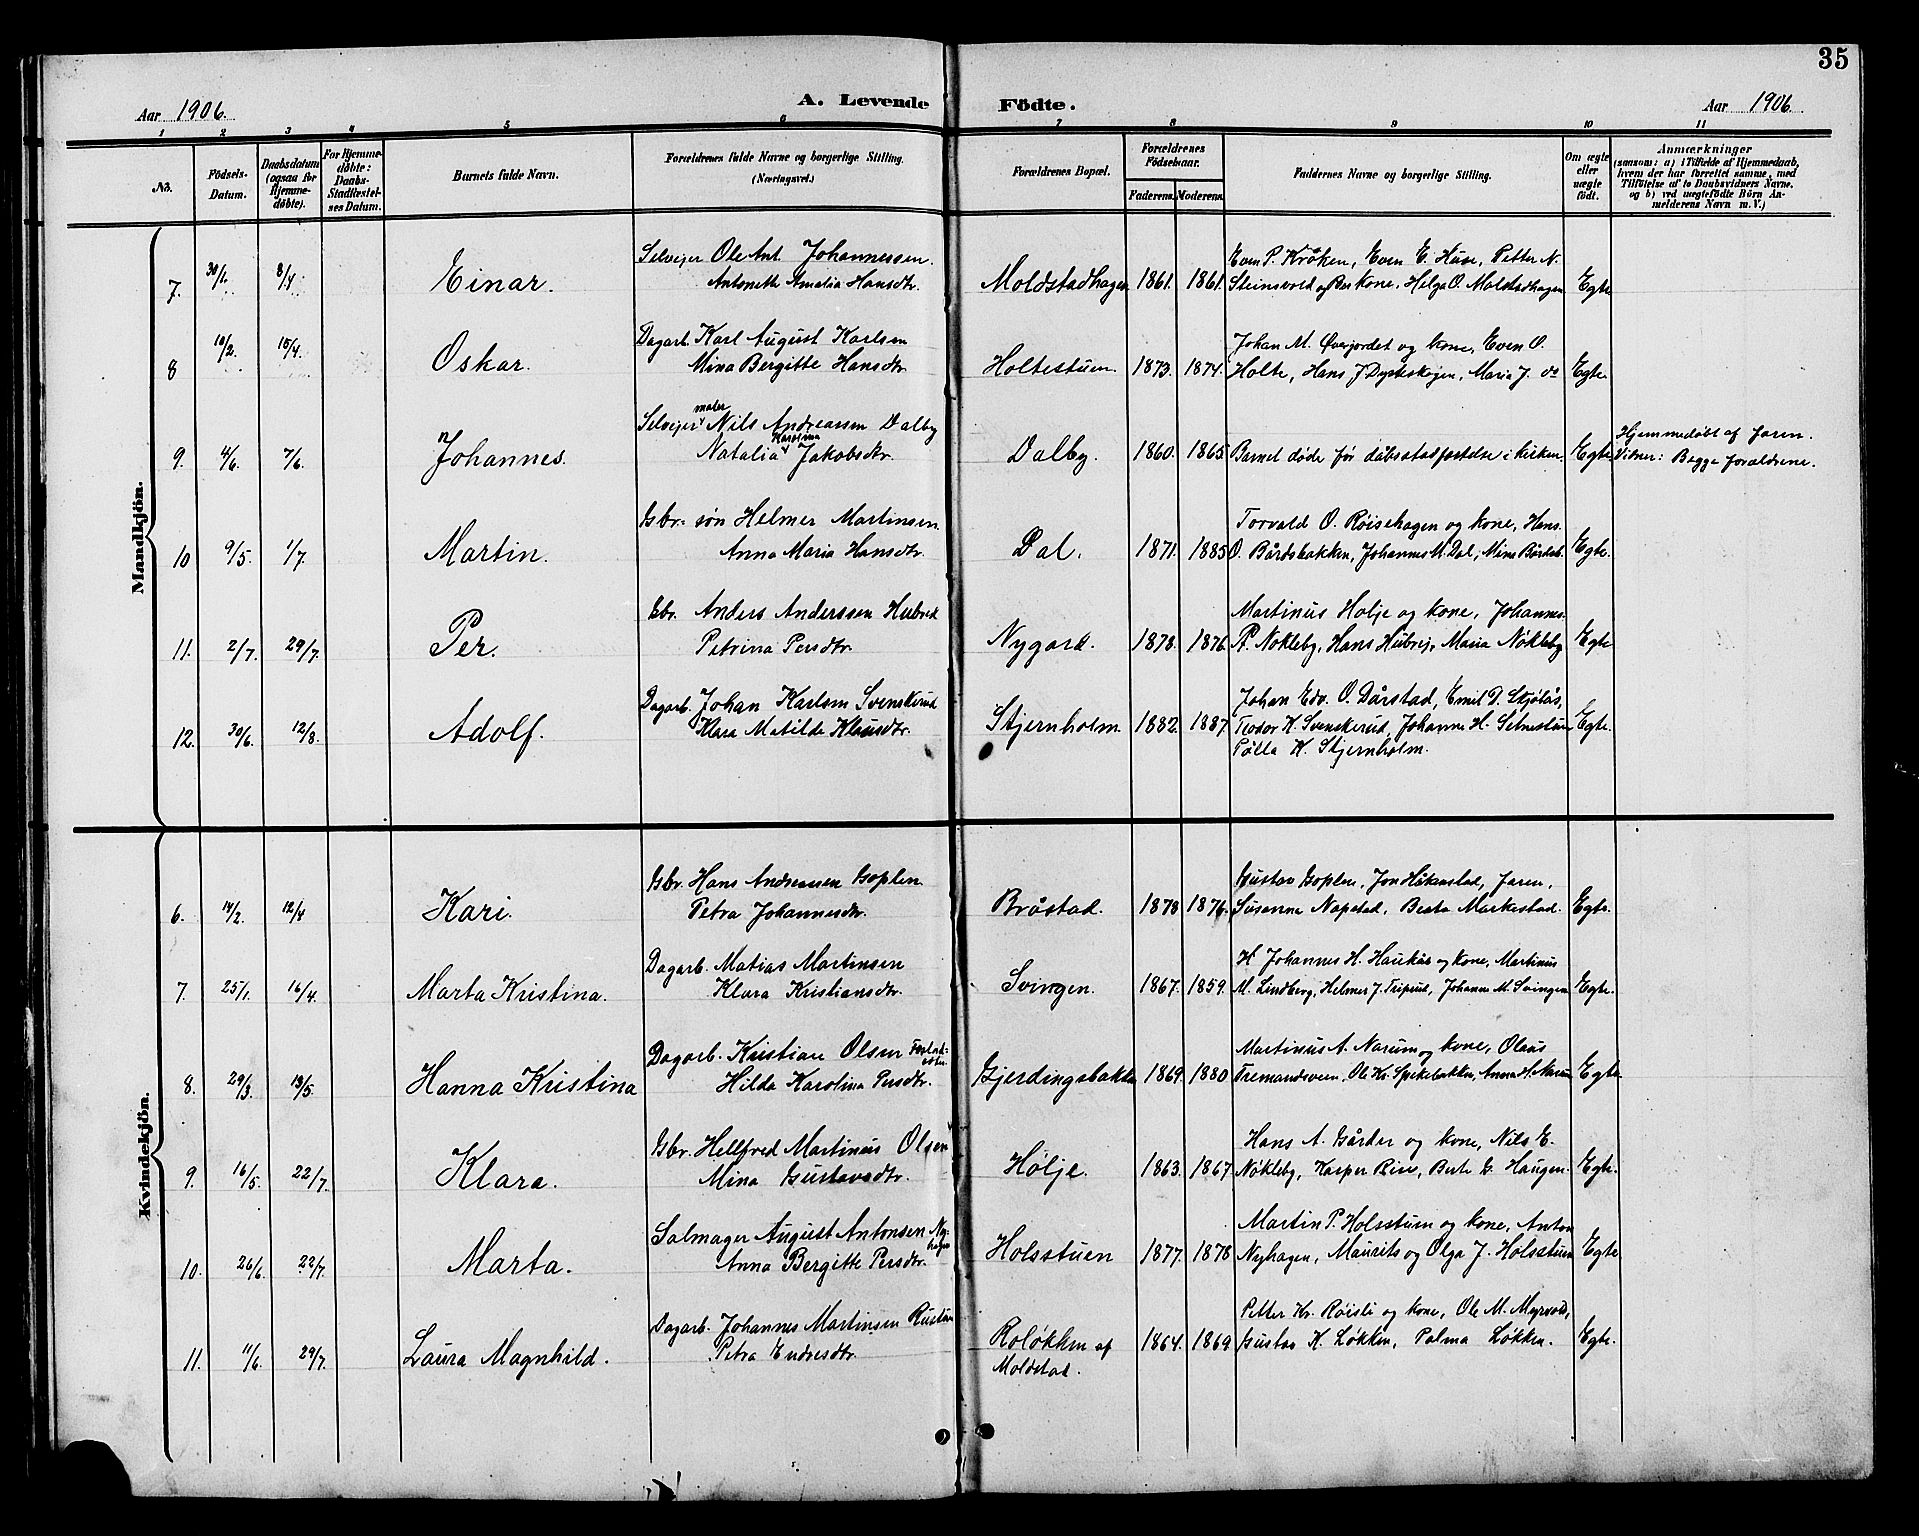 35
Aar 1906.
A. Levende Födte.
Aar 1906
1 2 3 4 5 6 7 8 9 10 11
No.
Födsels-
Datum.
Daabsdatum
(ogsaa for
Hjemme-
döbte).
For Hjemme-
döbte:
Daabs-
Stadfæstel-
ses Datum.
Barnets fulde Navn.
Forældrenes fulde Navne og borgerlige Stilling.
(Næringsvei.)
Forældrenes Bopæl.
Forældrenes
Födselsaar.
Faderens. Moderens.
Faddernes Navne og borgerlige Stilling.
Om ægte
eller
uægte
födt.
Anmærkninger
(saasom: a) i Tilfælde af Hjemmedaab,
hvem der har forrettet samme, med
Tilföielse af to Daabsvidners Navne,
og b) ved uægtefödte Börn An-
melderens Navn m. V.)
Mandkjön.
7. 30/1. 8/4 Einar. Selveier Ole Ant. Johannessen.
Antonette Amalia Hansdtr.
Moldstadhagen 1861. 1861.
Even P. Kroken, Even E. Huse, Petter N.
Steinsvold og kone, Helga O. Moldstadhagen
Egte
8 10/2. 15/4. Oskar. Dagarb. Karl August Karlsen
Mina Bergitte Hansdtr.
Holtestuen. 1873. 1874.
Johan M. Øverjordet og kone, Even O.
Holte, Hans J Dysteskogen, Maria J. do
Egte.
9. 4/6. 7/6. Johannes. Selveier maler Nils Andreassen Dalby
Natalia Karolina Jakobsdtr.
Dalby. 1860. 1865.
Barnet døde før dåbsstadfæstelse i kirken.
Egte.
Hjemmedøbt af faren.
Vidner: Begge forældrene.
10 9/5. 1/7. Martin. Gbr. søn Helmer Martinsen.
Anna Maria Hansdtr.
Dal. 1871. 1885
Torvald O. Røisehagen og kone, Hans
O. Bårdsbakken, Johannes M. Dal, Mina Bårdsb.
Egte.
11. 2/7. 29/7. Per. Gbr. Anders Anderssen
Petrina Persdtr.
Nygard. 1878. 1876.
Martinus Holje og kone, Johannes
P. Nøkleby, Hans Maria Nøkleby
Egte
12. 30/6. 12/8. Adolf. Dagarb. Johan Karlsen Svenskerud
Klara Matilde Klausdtr.
Stjernholm. 1882. 1887.
Johan Edv. O. Dårstad, Emil D. Skjølås,
Teodor K. Svenskerud, Johanne H. Setnestuen
K. Stjernholm.
Egte.
Kvindekjön.
6. 14/2. 12/4 Kari. Gbr. Hans Andreassen Goplen
Petra Johannesdtr.
Bråstad. 1878 1876.
Gustav Goplen, Jon Håkenstad, faren,
Susanne Napstad, Beata Markestad.
Egte.
7. 25/1. 16/4. Marta Kristina. Dagarb. Matias Martinsen
Klara Kristiansdtr.
Svingen. 1867. 1859.
Johannes H. Haukås og kone, Martinus
M. Lindberg, Helmer J. Triprud, Johanne M. Svingen
Egte.
8. 29/3. 13/5. Hanna Kristina Dagarb. Kristian Olsen
Hilda Karolina Persdtr.
Gjerdingsbakken 1869. 1880
Martinus A. Narum og kone, Olaus
Tremandsveen, Ole Kr. Spikebakken, Anna H. Narum
Egte.
9. 16/5. 22/7. Klara. Gbr. Hellfred Martinus Olsen
Mina Gustavsdtr.
Hølje. 1863. 1867.
Hans A. Gårder og kone, Nils E.
Nøkleby, Kasper Rise, Berte G. Haugen.
Egte.
10. 26/6. 22/7. Marta. Salmager August Antonsen Nyhagen
Anna Bergitte Persdtr.
Holsstuen 1877. 1878
Martin P. Holsstuen og kone, Anton
Nyhagen, Maurits og Olga J. Holsstuen
Egte.
11. 11/6. 29/7. Laura Magnhild. Dagarb. Johannes Martinsen
Petra Endresdtr.
Roløkken af
Moldstad.
1864. 1869
Petter Kr. Røisli og kone, Ole M. Myrvold,
Gustav K. Løkken, Palma Løkken.
Egte.